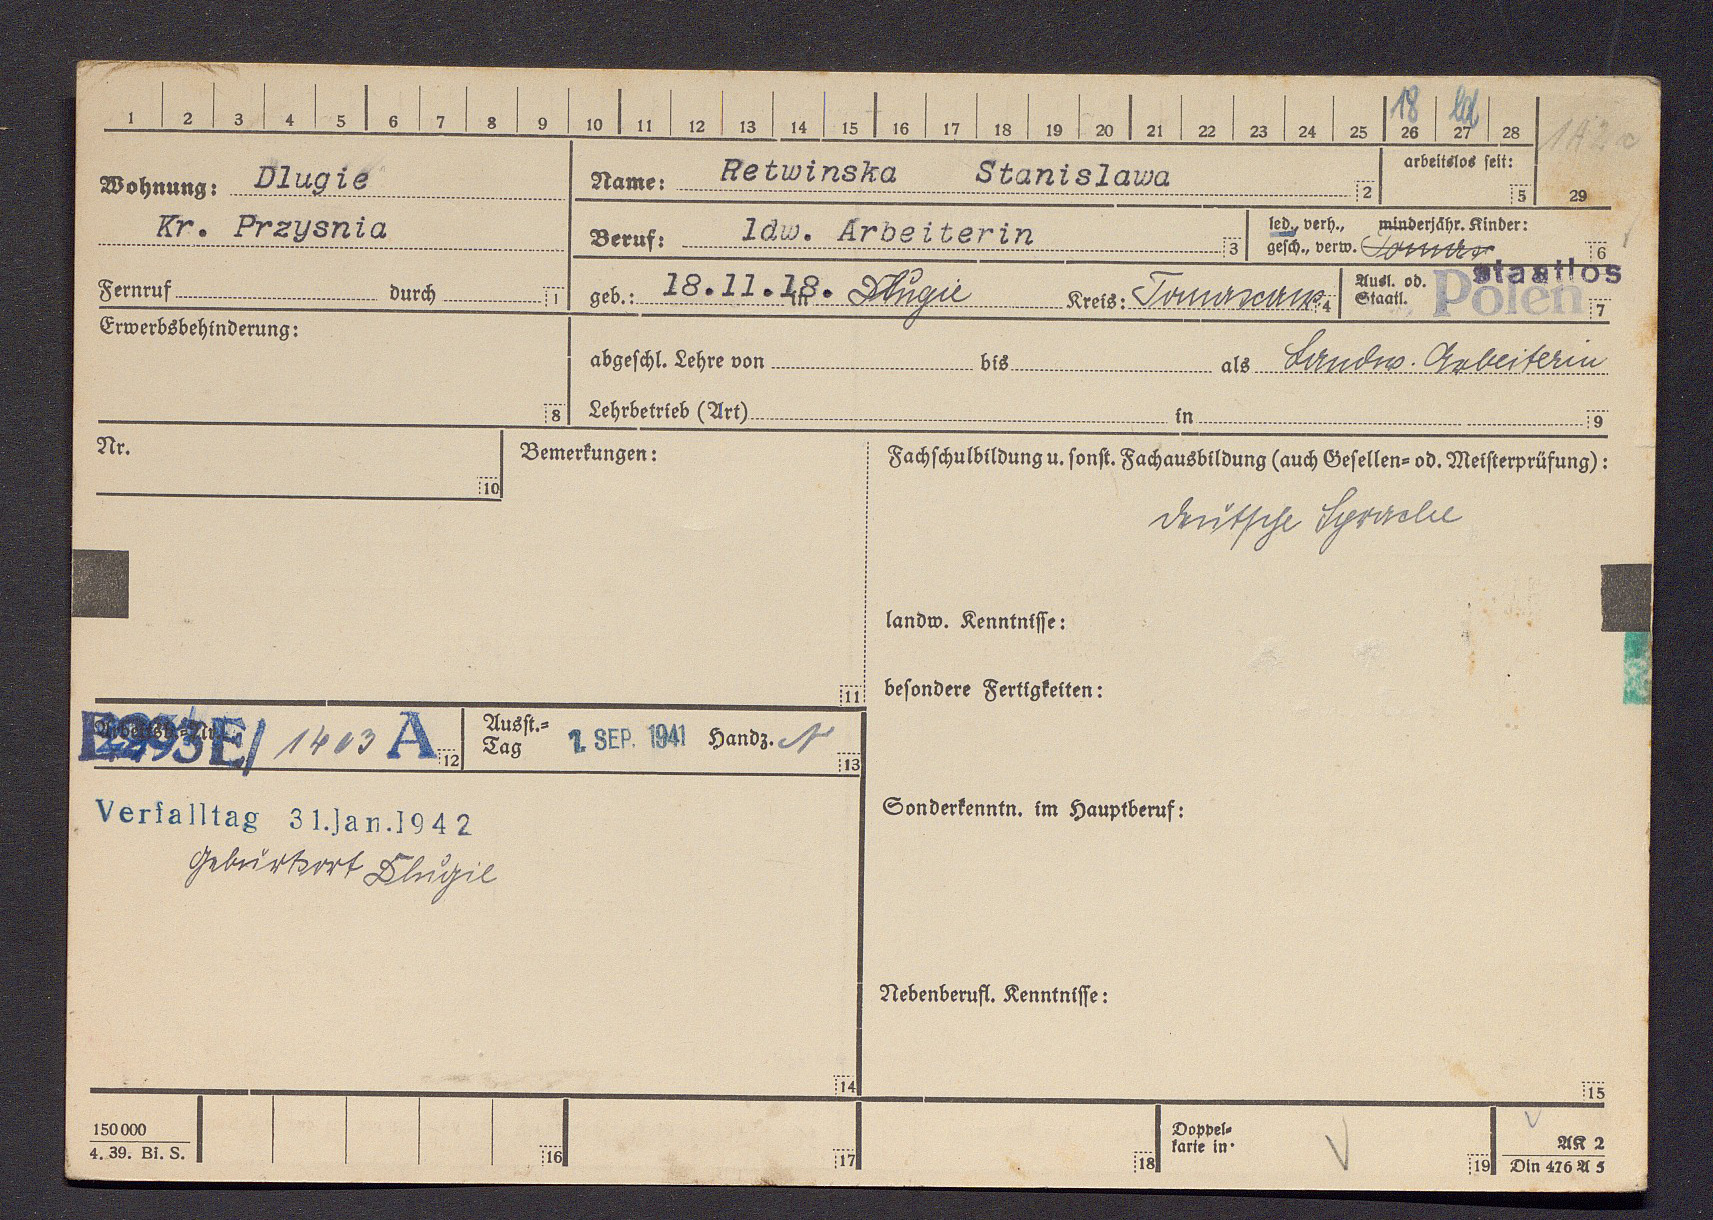 1 2 3 4 5 6 7 8 9 10 11 12 13 14 15 16 17 18 19 20 21 22 23 24 25 26 27 28
18
1A2c
29
Wohnung: Dlugie
Kr. Przysnia
Fernruf durch 1
Name: Retwinska Stanislawa 2
arbeitslos seit: 5
Beruf: ldw. Arbeiterin 3
led., verh., minderjähr. Kinder:
gesch., verw. 6
geb.: 18.11.18. in Dlugie Kreis: 4
Ausl. od. Staatl. Polen staatlos 7
Erwerbsbehinderung:
8
abgeschl. Lehre von bis als Landw. Arbeiterin
Lehrbetrieb (Art) in 9
Nr.
10
Bemerkungen:
11
Fachschulbildung u. sonst. Fachausbildung (auch Gesellen- od. Meisterprüfung):
deutsche Sprache
landw. Kenntnisse:
besondere Fertigkeiten:
E/ 1403 A 12
Ausst.-Tag 1. SEP. 1941 Handz. 13
Verfalltag 31.Jan.1942
Geburtsort Dlugie
14
Sonderkenntn. im Hauptberuf:
Nebenberufl. Kenntnisse:
15
150 000
4. 39. Bi. S.
16
17
18
Doppel-
karte in·
19
AK 2
Din 476 A 5